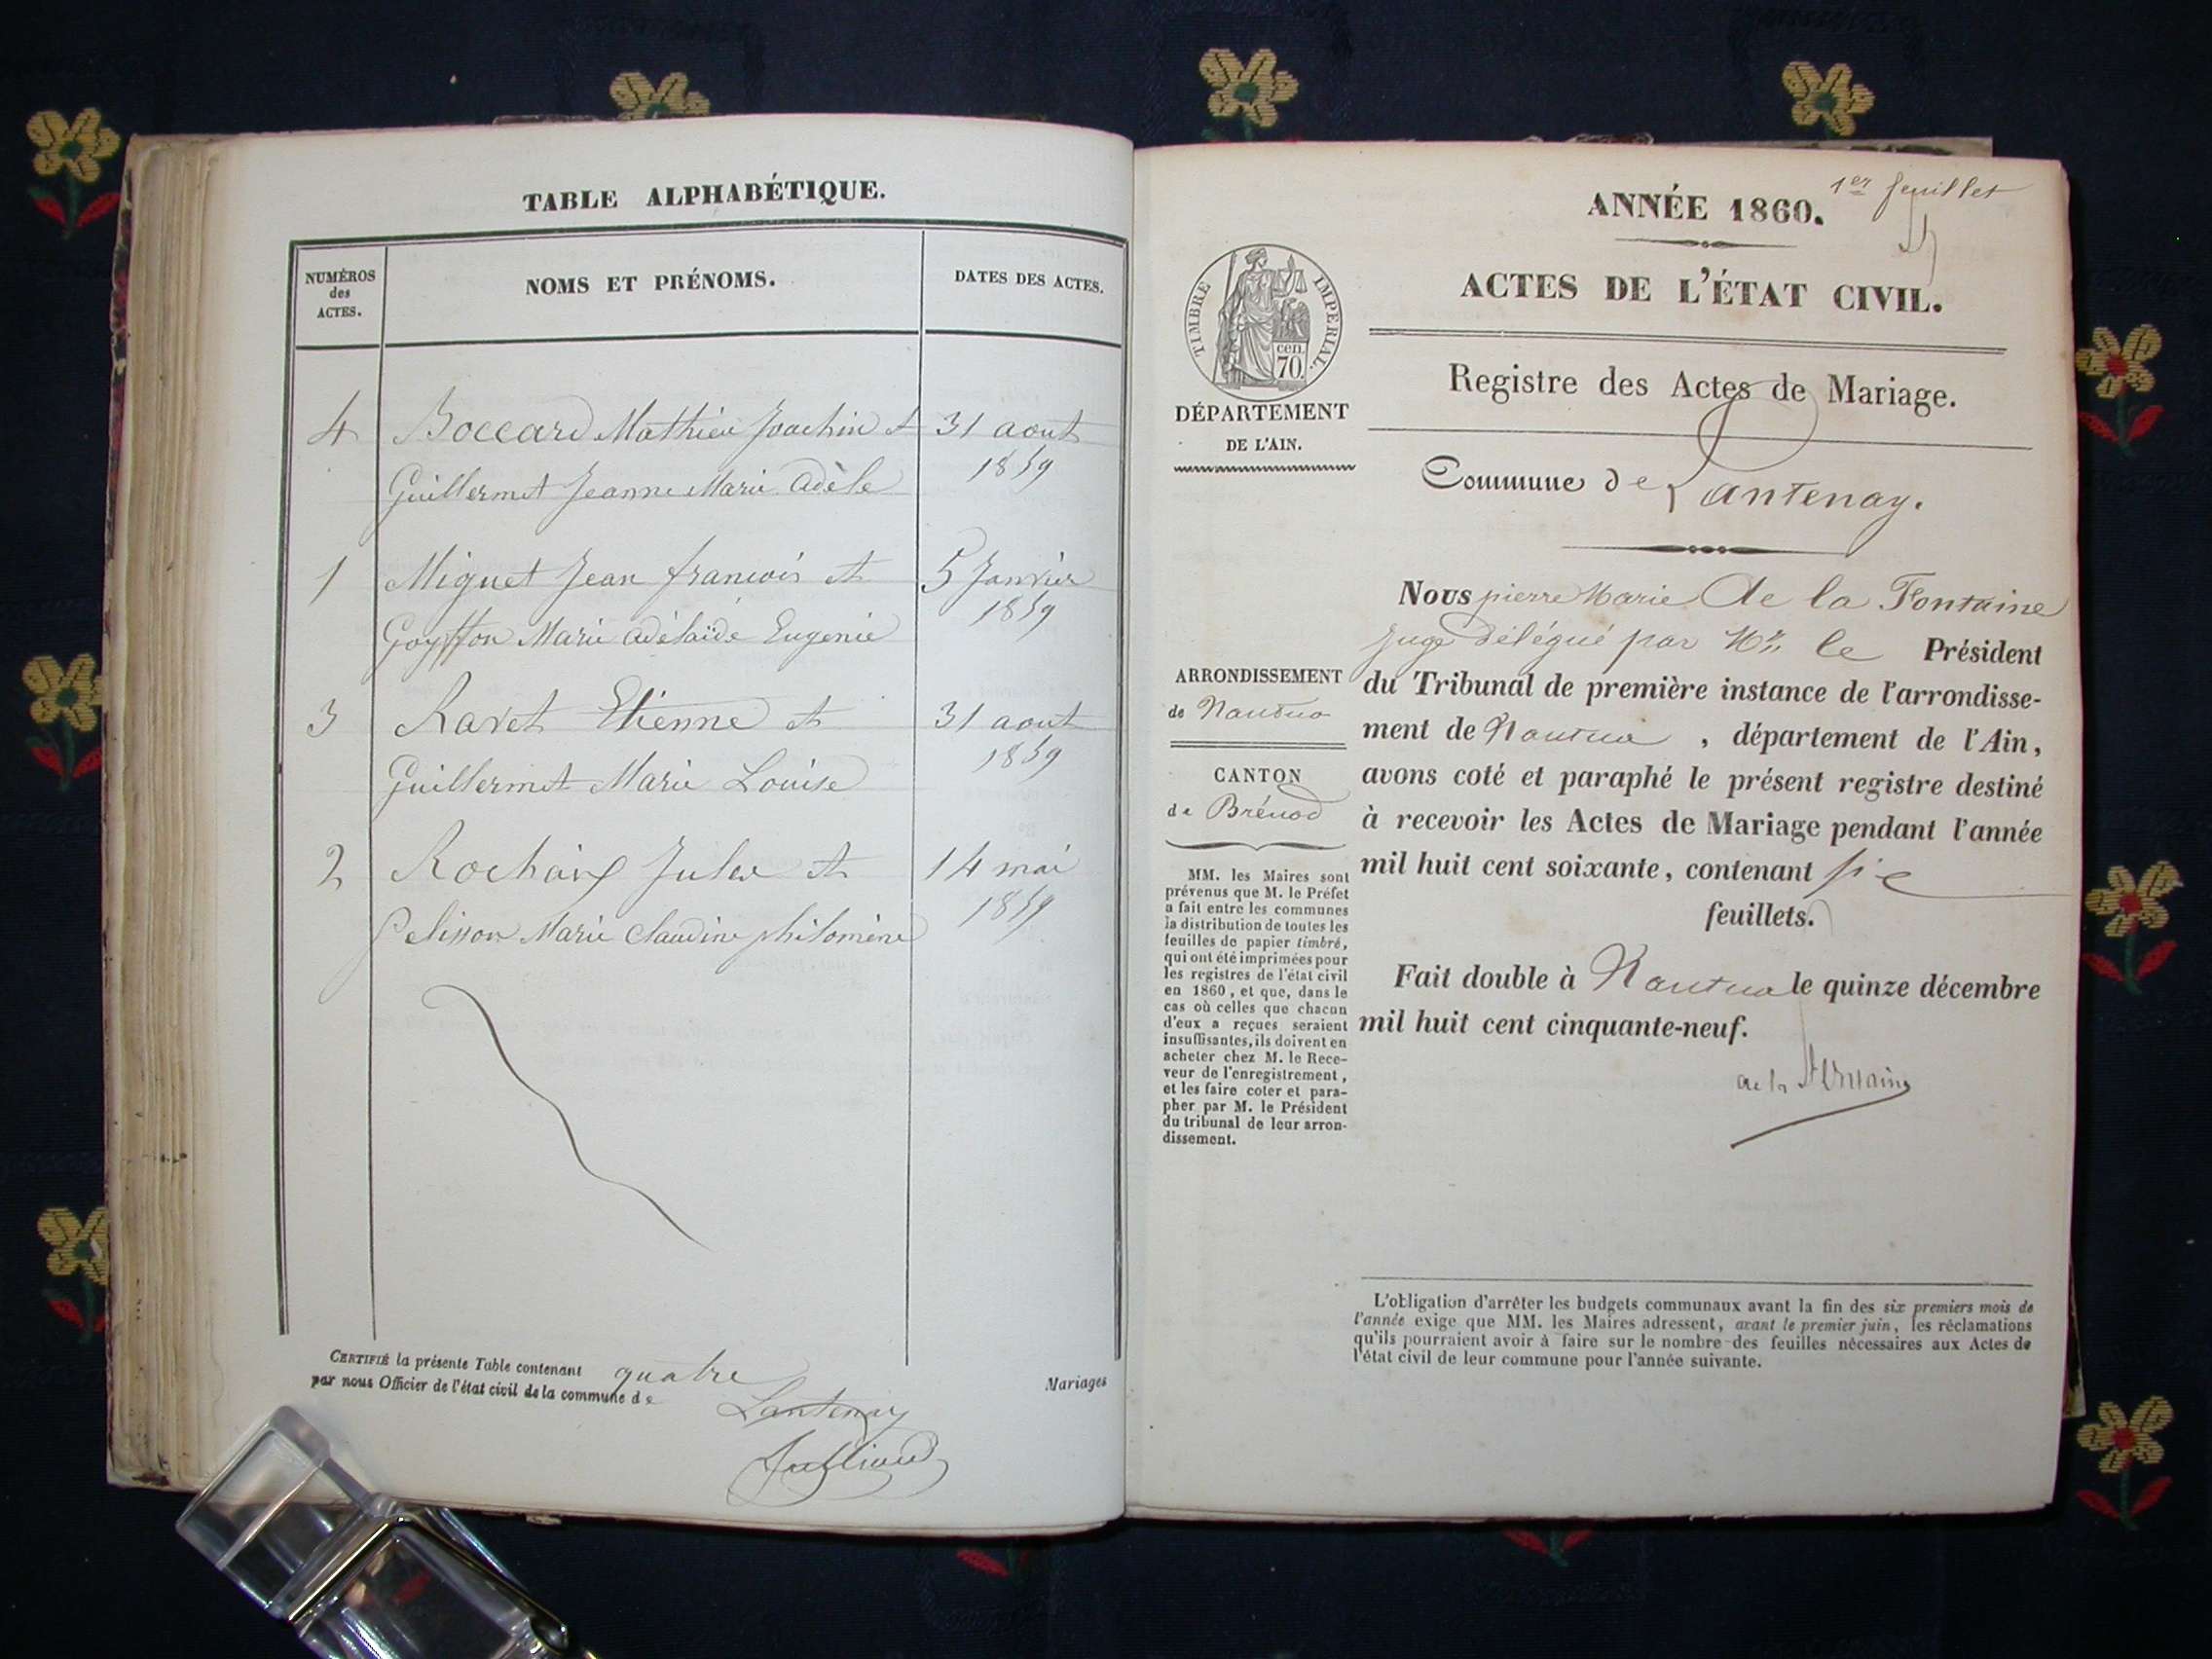 TABLE ALPHABÉTIQUE.
NUMÉROS
des
ACTES.
NOMS ET PRÉNOMS.
DATES DES ACTES.
4 Boccard Mathieu Joachin et 31 aout
Guillermet Jeanne Marie Adèle 1859
1 Miguet Jean francois et 5 Janvier
Goyffon Marie adélaïde Eugenie 1859
3 Ravet Etienne et 31 aout
Guillermet Marie Louise 1859
2 Rochaix Jules et 14 mai
Pelisson Marie Claudine philomène 1859
CERTIFIÉ la présente Table contenant quatre Mariages
par nous Officier de l'état civil de la commune de
Lantenay
Julliard
1er feuillet
ANNÉE 1860.
ACTES DE L'ÉTAT CIVIL.
TIMBRE IMPERIAL.
cen.
70.
DÉPARTEMENT
DE L'AIN.
Registre des Actes de Mariage.
Commune de Lantenay.
ARRONDISSEMENT
de Nantua
CANTON
de Brénod
MM. les Maires sont
prévenus que M. le Préfet
a fait entre les communes
la distribution de toutes les
feuilles de papier timbré,
qui ont été imprimées pour
les registres de l'état civil
en 1860, et que, dans le
cas où celles que chacun
d'eux a reçues seraient
insuffisantes, ils doivent en
acheter chez M. le Rece-
veur de l'enregistrement,
et les faire coter et para-
pher par M. le Président
du tribunal de leur arron-
dissement.
Nous pierre Marie De la Fontaine
juge délégué par Mr. le Président
du Tribunal de première instance de l'arrondisse-
ment de Nantua, département de l'Ain,
avons coté et paraphé le présent registre destiné
à recevoir les Actes de Mariage pendant l'année
mil huit cent soixante, contenant
feuillets.
Fait double à Nantua le quinze décembre
mil huit cent cinquante-neuf.
de la Fontaine
L'obligation d'arrêter les budgets communaux avant la fin des six premiers mois de
l'année exige que MM. les Maires adressent, avant le premier juin, les réclamations
qu'ils pourraient avoir à faire sur le nombre des feuilles nécessaires aux Actes de
l'état civil de leur commune pour l'année suivante.